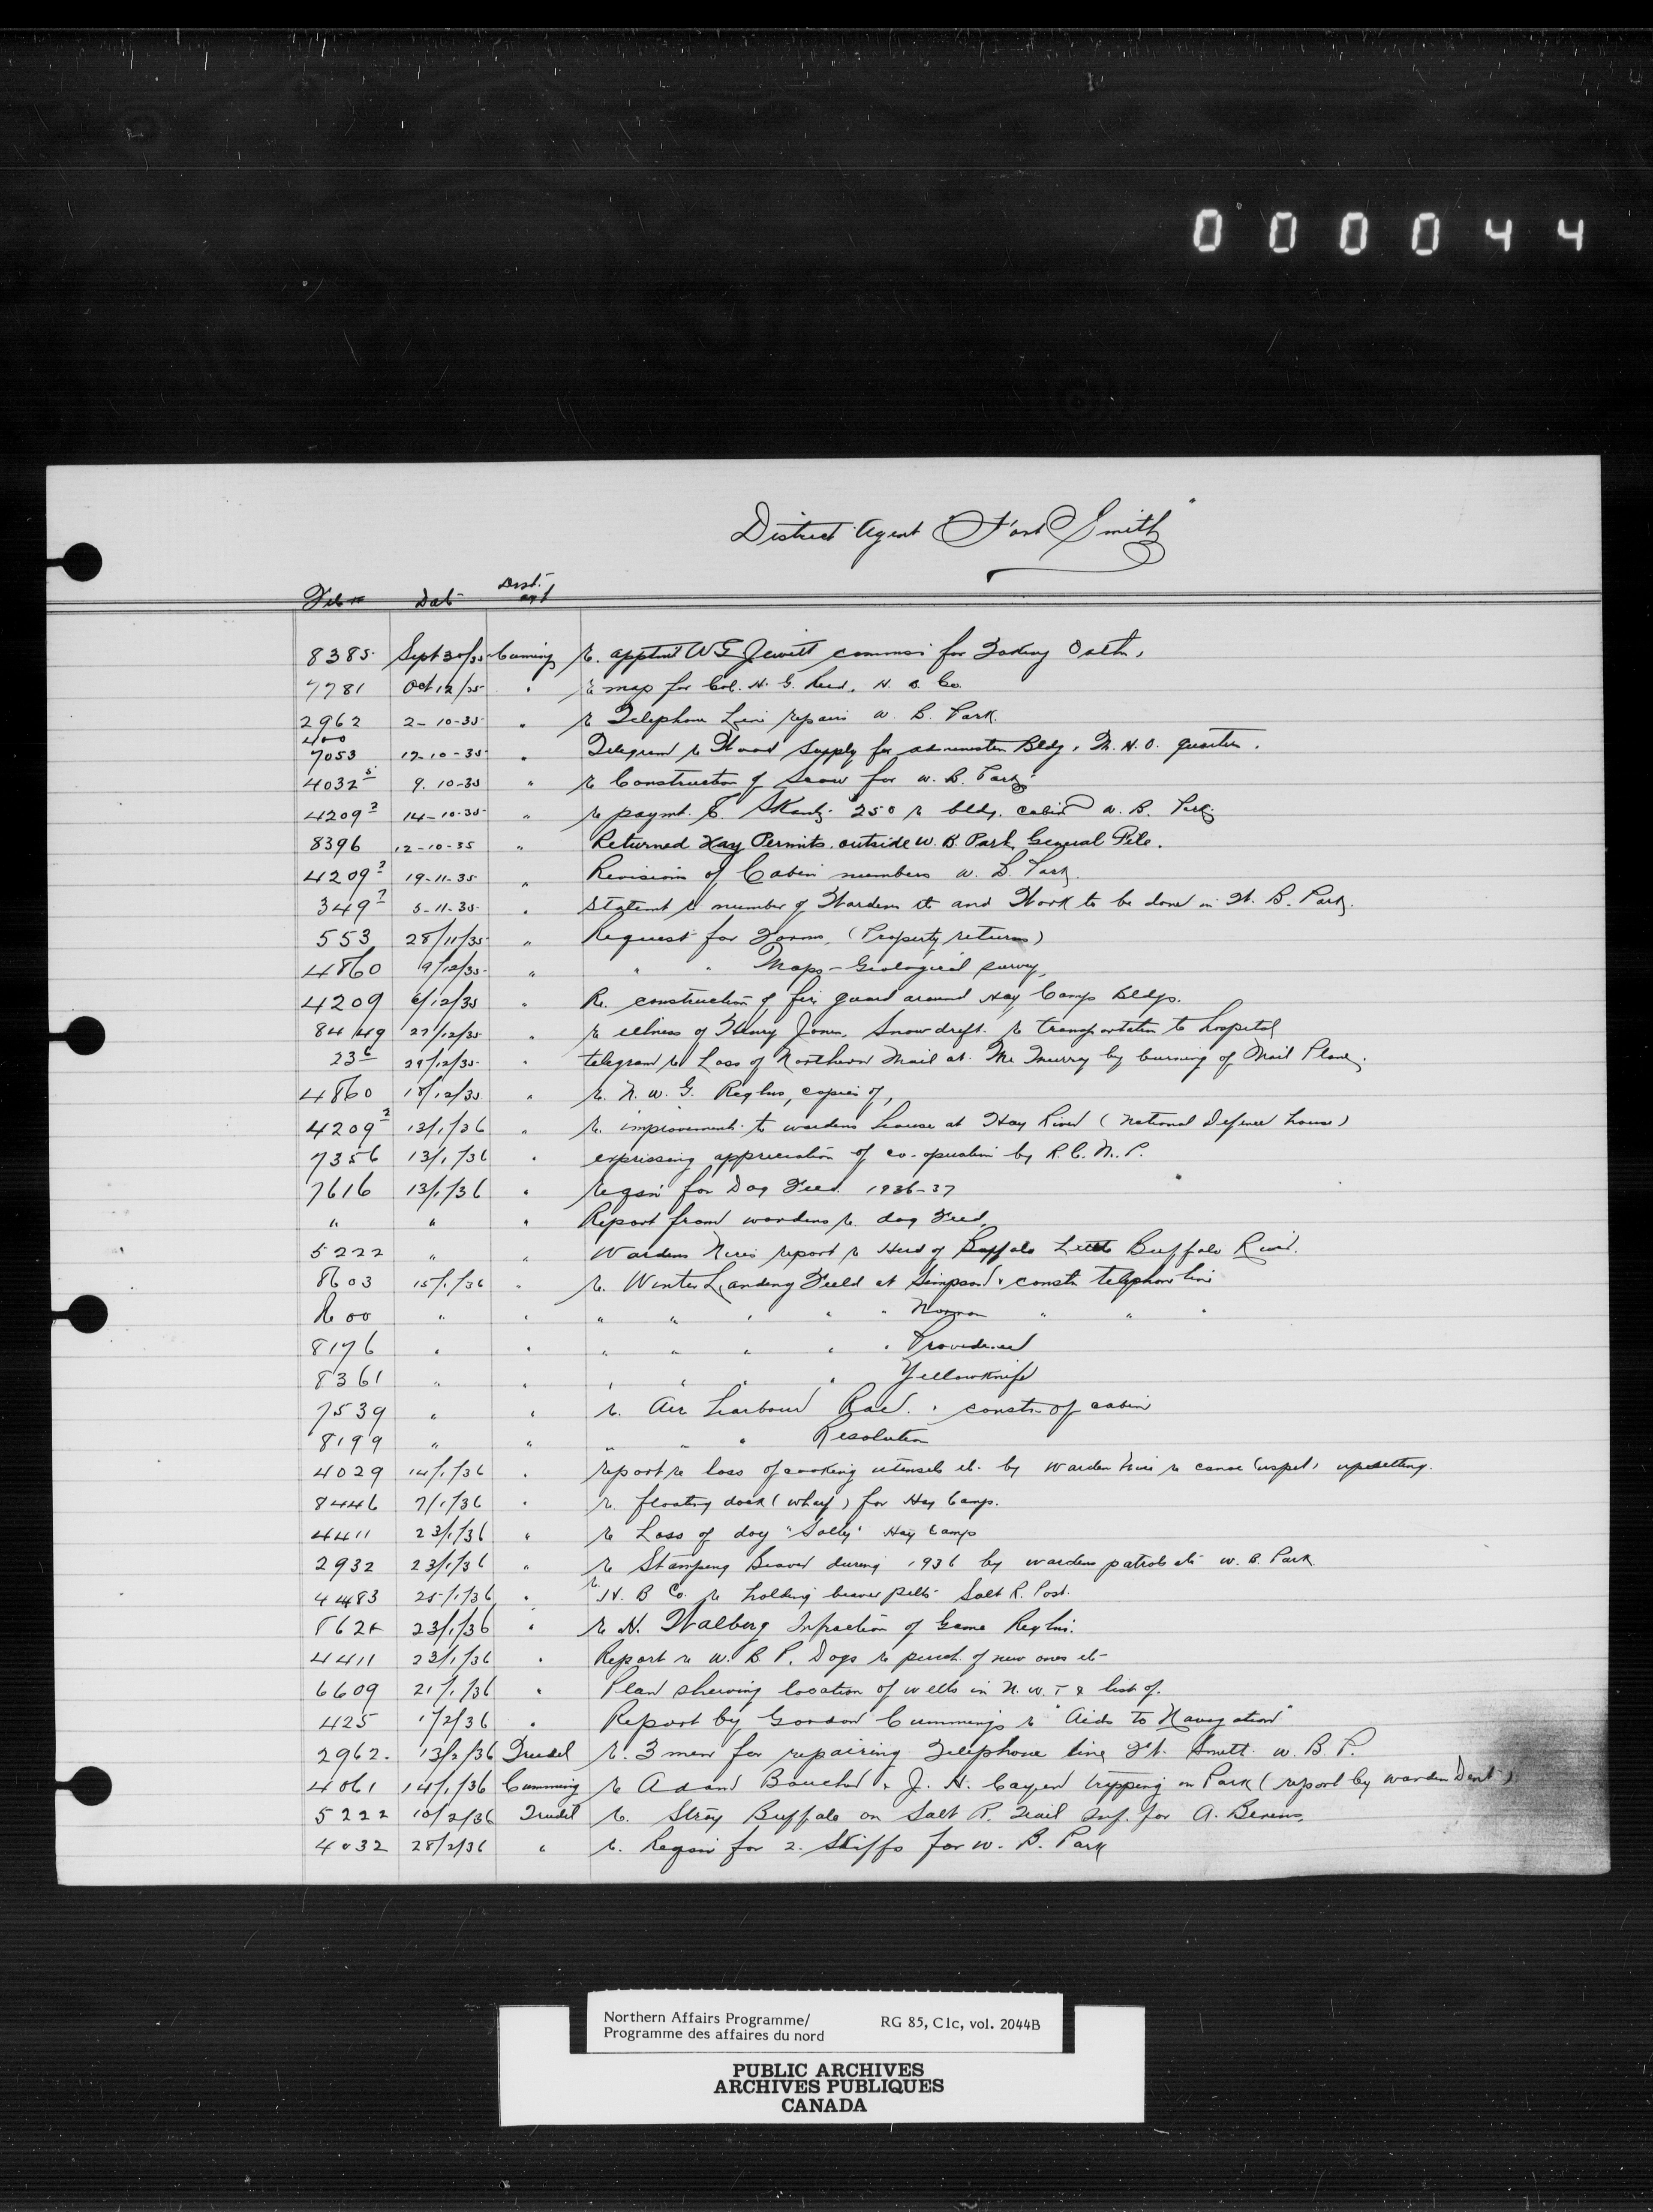 000044
District Agent "Fort Smith"
File # Date Dist. agt
8385 Sept 30/35 Cuming re. apptmt W G Jewitt commsr for Taking Oaths,
7781 Oct 12/35 " re map for Col. H. G. Reid. H. B. Co.
2962 2-10-35 " re Telephone Line repairs W. B. Park.
400
7053 12-10-35 " Telegram re Wood Supply for administn Bldg, M.H.O. quarters.
4032 5 9.10-35 " re Construction of Scow for W. B. Park
4209 2 14-10-35 " re paymt. 250 re bldg. cabin W. B. Park
8396 12-10-35 " Returned Hay Permits. outside W. B. Park General File.
4209 2 19-11-35 " Revision of Cabin numbers W. B. Park.
349 2 5-11-35 " Statemt re number of Wardens etc and Work to be done in W. B. Park.
553 28/11/35 " Request for Forms, (Property returns)
4860 9/12/35 " " " Maps - Geological Survey
4209 6/12/35 " Re. construction of fire guard around Hay Camp Bldgs.
8449 27/12/35 " re illness of Henry Jones, Snowdrift. re transportation to hospital
23 6 29/12/35 " telegram re Loss of Northern Mail at Mc Murray by burning of Mail Plane.
4860 18/12/35 " re. N. W. G. Regltns, copies of,
4209 2 13/1/36 " re. improvements to wardens house at Hay River (National Defence house)
7356 13/1/36 " expressing appreciation of co-operation by R.C.M.P.
7616 13/1/36 " reqsn for Dog Feed 1936-37
" " " Report from wardens re. dog Feed,
5222 " " Wardens report re Herd of Buffalo Little Buffalo River.
8603 15/1/36 " re. Winter Landing Field at Simpson & constn telephone line
600 " " " " " " " Norman " " "
8176 " " " " " " " Providence
8361 " " " " " " Yellowknife
7539 " " re. Air harbour Rae. & constn of cabin
8199 " " " " " Resolution
4029 14/1/36 " report re loss of cooking utensils etc by Warden re canoe upsetting.
8446 7/1/36 " re. floating dock (wharf) for Hay Camp.
4411 23/1/36 " re Loss of dog "Solly" Hay Camp
2932 23/1/36 " re Stamping Beaver during 1936 by wardens patrols etc W. B. Park
4483 25/1/36 " re. H. B Co. re holding beaver pelts Salt R. Post.
23/1/36 " re H. Walberg Infraction of Game Regltns.
4411 23/1/36 " Report re W. B P. Dogs re purch. of new ones etc
6609 21/1/36 " Plan shewing location of wells in N.W.T & list of.
425 1/2/36 " Report by Gordon Cummings re "Aids to Navigation"
2962. 13/2/36 Trudel re. 3 men for repairing Telephone line Ft. Smith W. B P.
4061 14/1/36 Cumming re Adam Boucher & J. H. trapping in Park (report by warden Dent)
5222 10/2/36 Trudel re. Stray Buffalo on Salt R. Trail Inf. for A.
4032 28/2/36 " re. Reqsn for 2. Skiffs for W. B. Park
Northern Affairs Programme/
Programme des affaires du nord
RG 85, C1c, vol. 2044B
PUBLIC ARCHIVES
ARCHIVES PUBLIQUES
CANADA